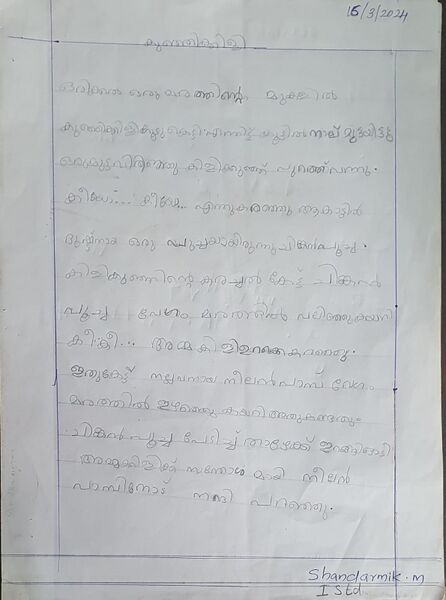 16/3/2024
കുഞ്ഞിക്കിളി
ഒരിക്കൽ ഒരു മരത്തിന്റെ മുകളിൽ
കുഞ്ഞിക്കിളികൂടുകെട്ടി എന്നിട്ട് കൂട്ടിൽ നാല് മുട്ടയിട്ടു
ഒരുമുട്ടവിരിഞ്ഞു കിളികുഞ്ഞ് പുറത്ത് വന്നു.
കീയോ.... കീയോ.. എന്നുകരഞ്ഞു ആകാട്ടിൽ
ദുഷ്ടനായ ഒരു പൂച്ചയായിരുന്നു ചിങ്കൻപൂച്ച.
കിളികുഞ്ഞിന്റെ കരച്ചൽ കേട്ട് ചിങ്കൻ
പൂച്ച വേഗം മരത്തിൽ വലിഞ്ഞുകയറി
കീ:കീ:... അമ്മകിളിഉറക്കെകരഞ്ഞു.
ഇതുകേട്ട് നല്ലവനായ നീലൻപാമ്പ് വേഗം
മരത്തിൽ ഇഴഞ്ഞു കയറി അതുകണ്ടതും
ചിങ്കൻ പൂച്ച പേടിച്ച് താഴേക്ക് ഇറങ്ങിഓടി
അമ്മക്കിളിക്ക് സന്തോഷമായി നീലൻ
പാമ്പിനോട് നന്ദി പറഞ്ഞു.
Shandarmik.M
I Std